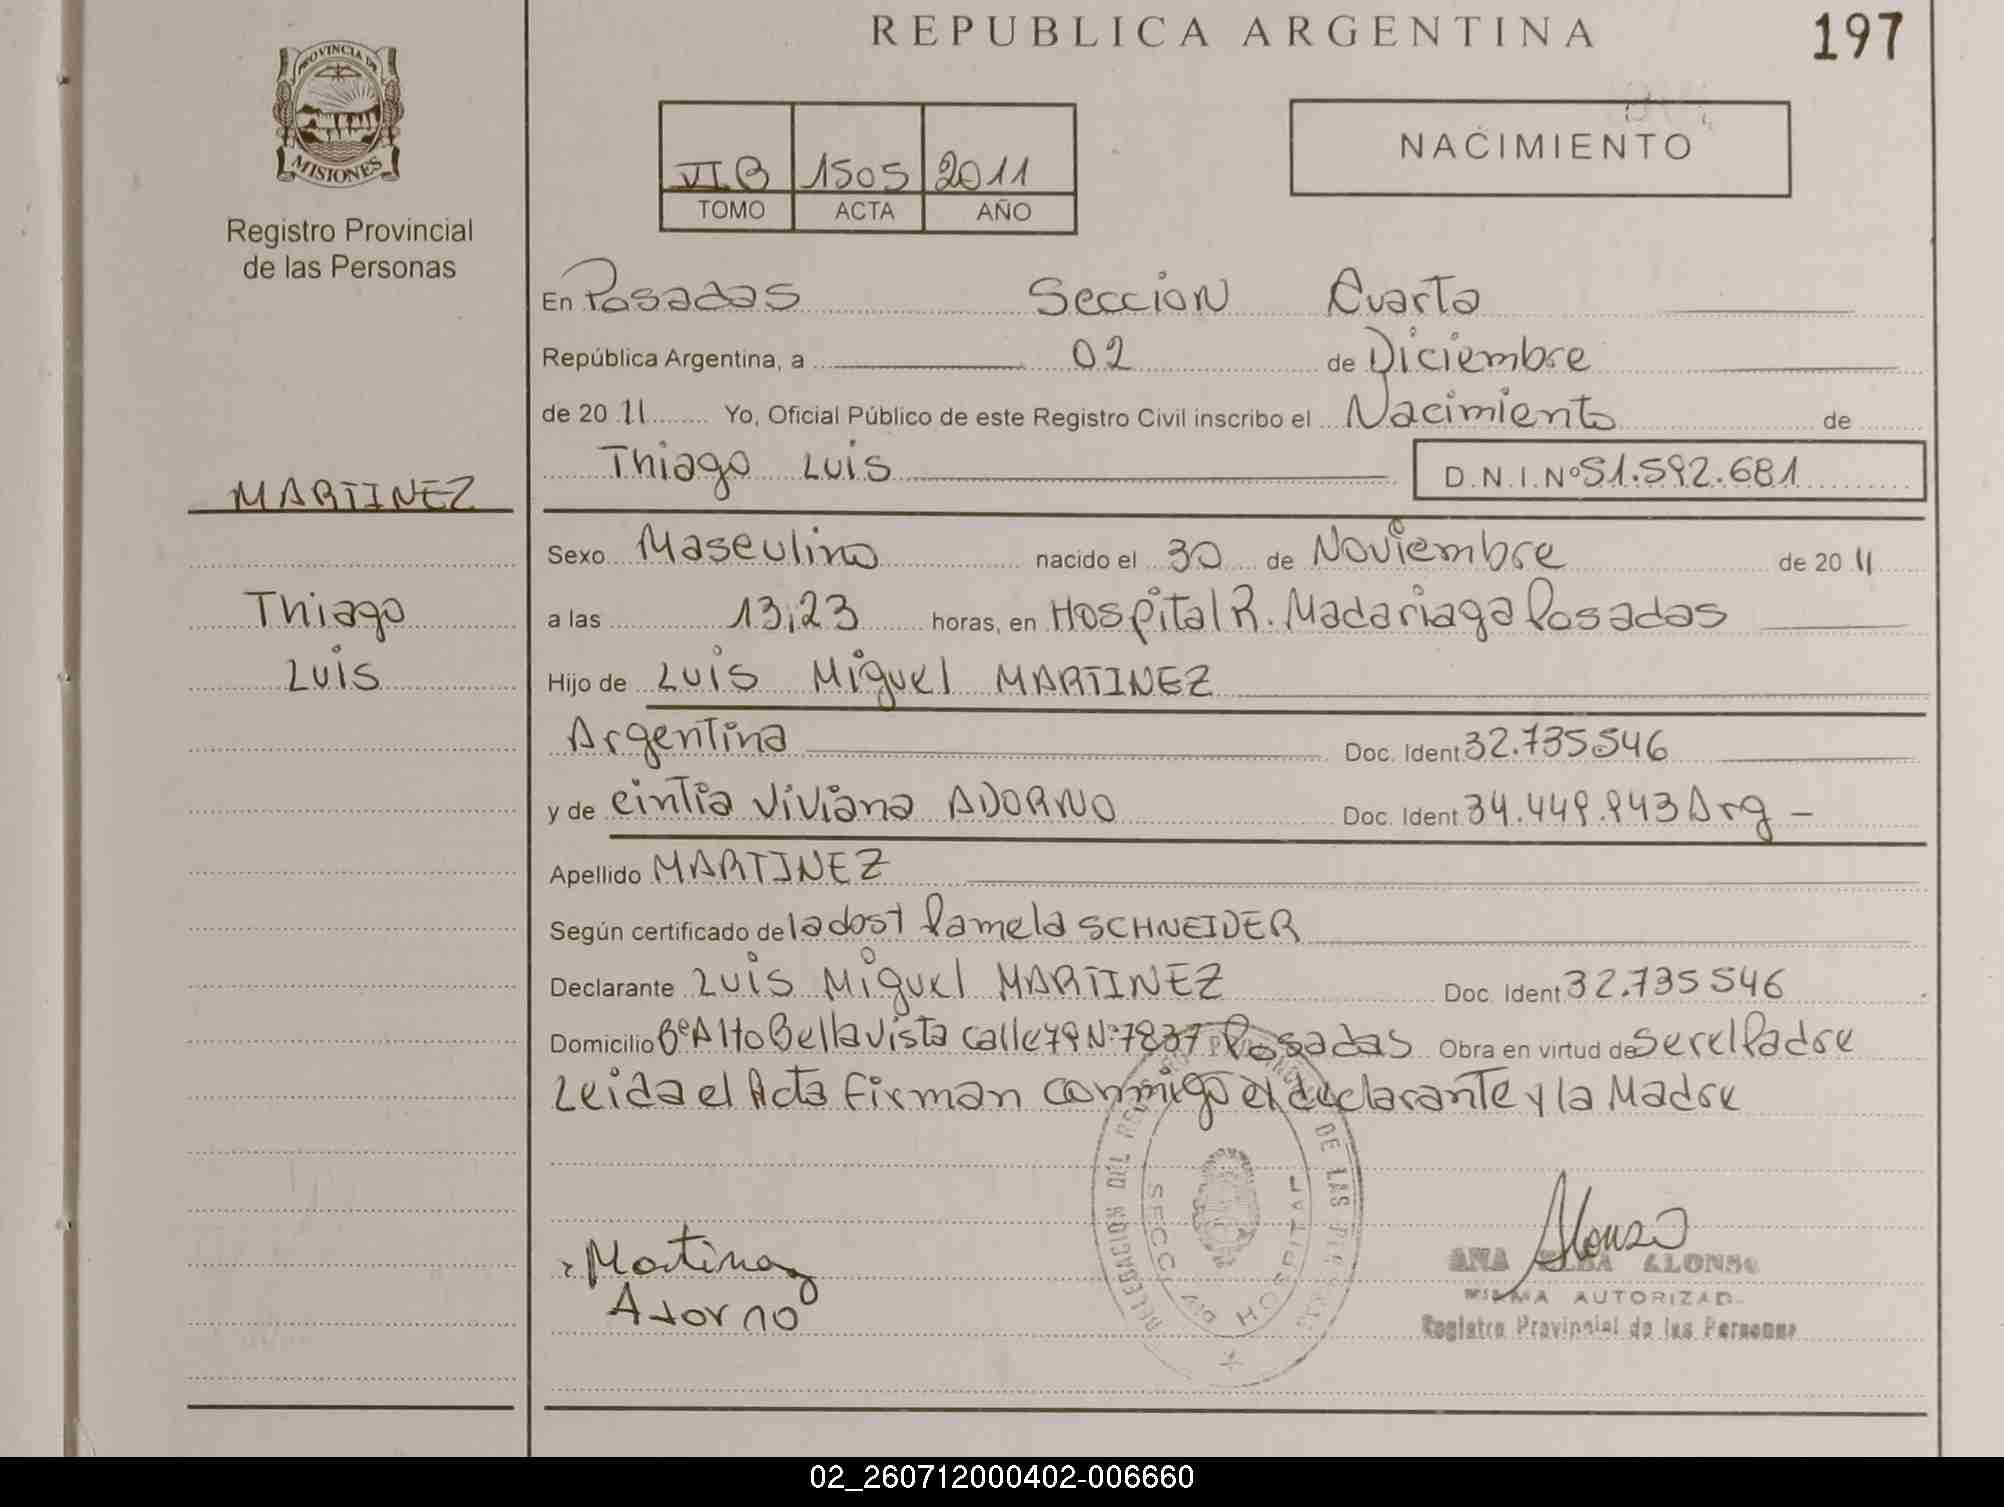 REPUBLICA ARGENTINA
197
PROVINCIA DE
MISIONES
Registro Provincial
de las Personas
VI.B 1505 2011
TOMO ACTA AÑO
NACIMIENTO
En Posadas Seccion Cuarta
República Argentina, a 02 de Diciembre
de 2011 Yo, Oficial Público de este Registro Civil inscribo el Nacimiento de
Thiago Luis D.N.I.Nº 51.592.681
MARTINEZ
Thiago
Luis
Sexo Masculino nacido el 30 de Noviembre de 2011
a las 13,23 horas, en Hospital R. Madariaga Posadas
Hijo de Luis Miguel MARTINEZ
Argentina Doc. Ident 32.735546
y de Cintia Viviana ADORNO Doc. Ident. 34.449.943 Arg -
Apellido MARTINEZ
Según certificado de la dost Pamela SCHNEIDER
Declarante Luis Miguel MARTINEZ Doc. Ident 32.735546
Domicilio Bº Alto Bella Vista calle 79 Nº 7837 Posadas Obra en virtud de ser el Padre
Leida el Acta firman conmigo el declarante y la Madre
DELEGACION DEL DE LAS
SECC. HOSPITAL
Martinez
Adorno
Alonso
ANA ALONSO
FIRMA AUTORIZAD.
Registro Provincial de las Personas
02_260712000402-006660